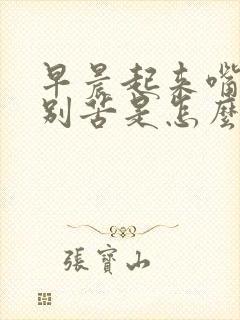 早晨起来嘴
别苦是怎麼
張寶山